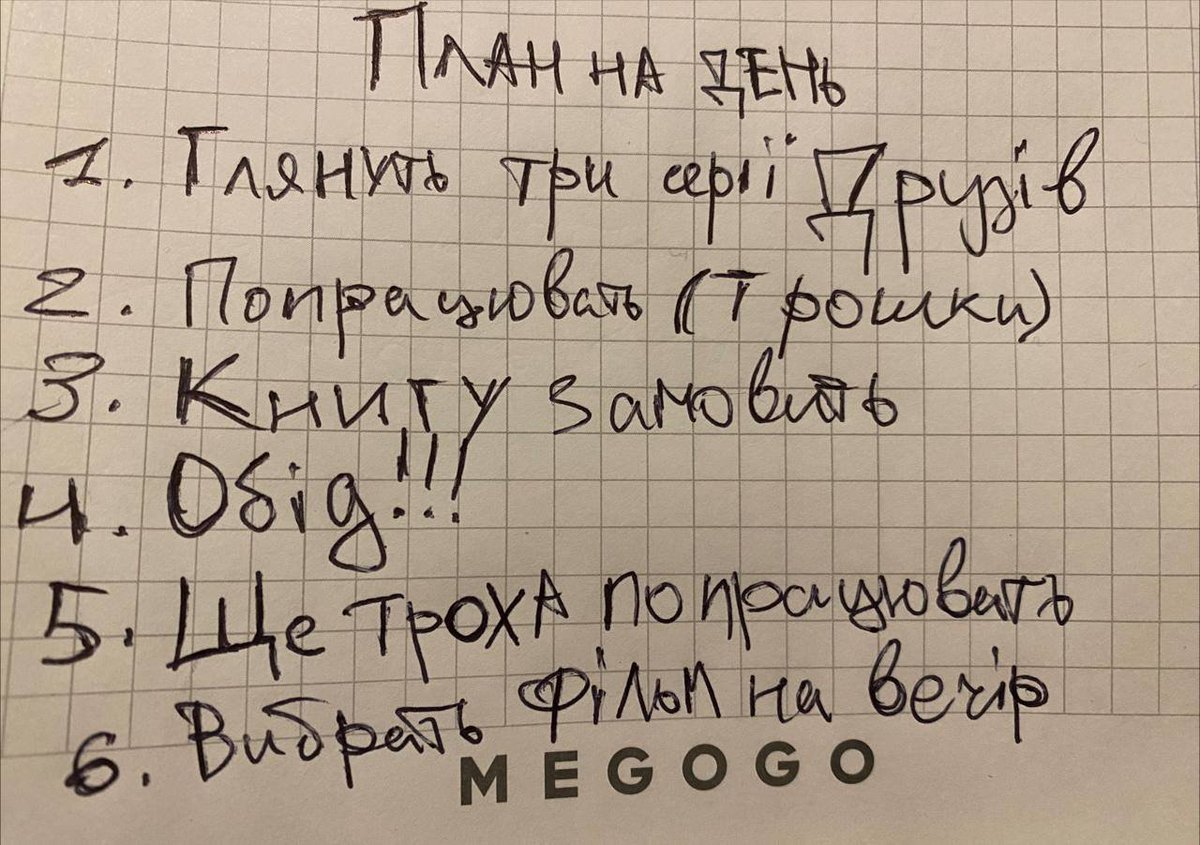 План на день
1. Глянуть три серії Друзів
2. Попрацювать (Трошки)
3. Книгу замовить
4. Обід!!!
5. Ще троха попрацювать
6. Вибрать фільм на вечір
MEGOGO